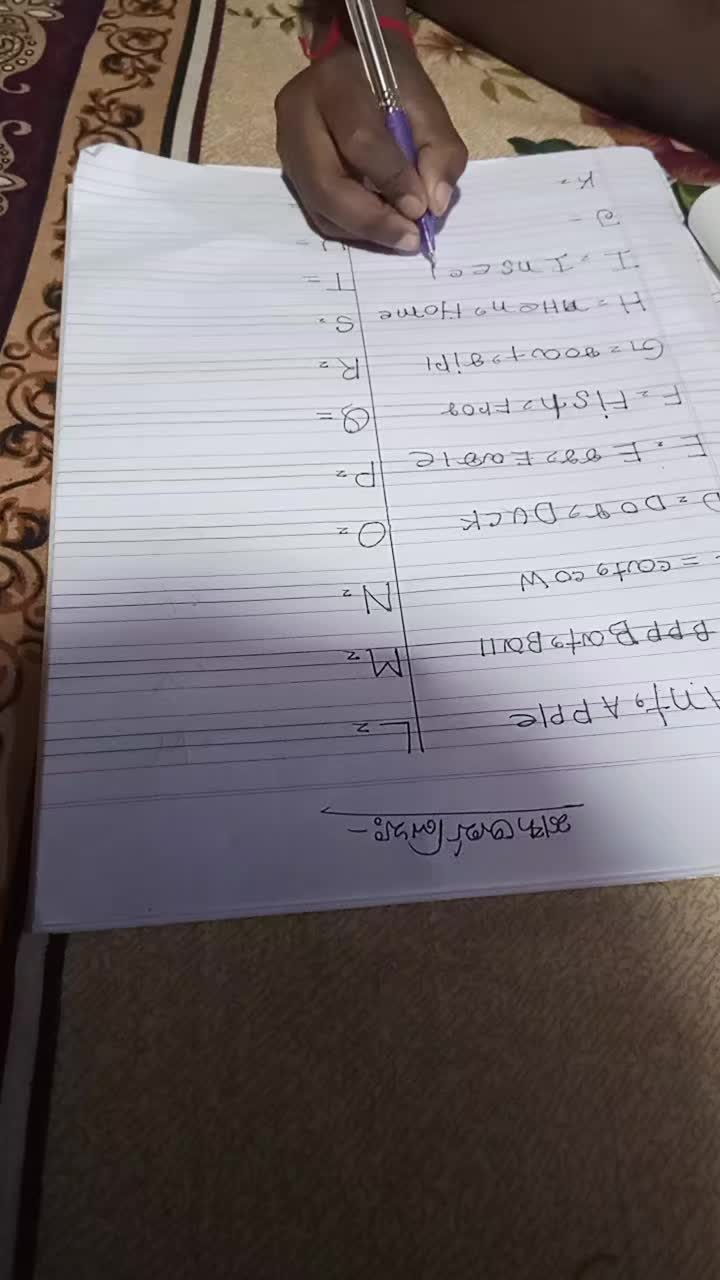 Ant, Apple
BPP Bat, Ball
= cat, cow
D = Dog, Duck
E = Egg, Eagle
F = Fish, Frog
G = goat, girl
H = Hen, Home
I = Insec
J =
K =
L =
M =
N =
O =
P =
Q =
R =
S =
T =
U =